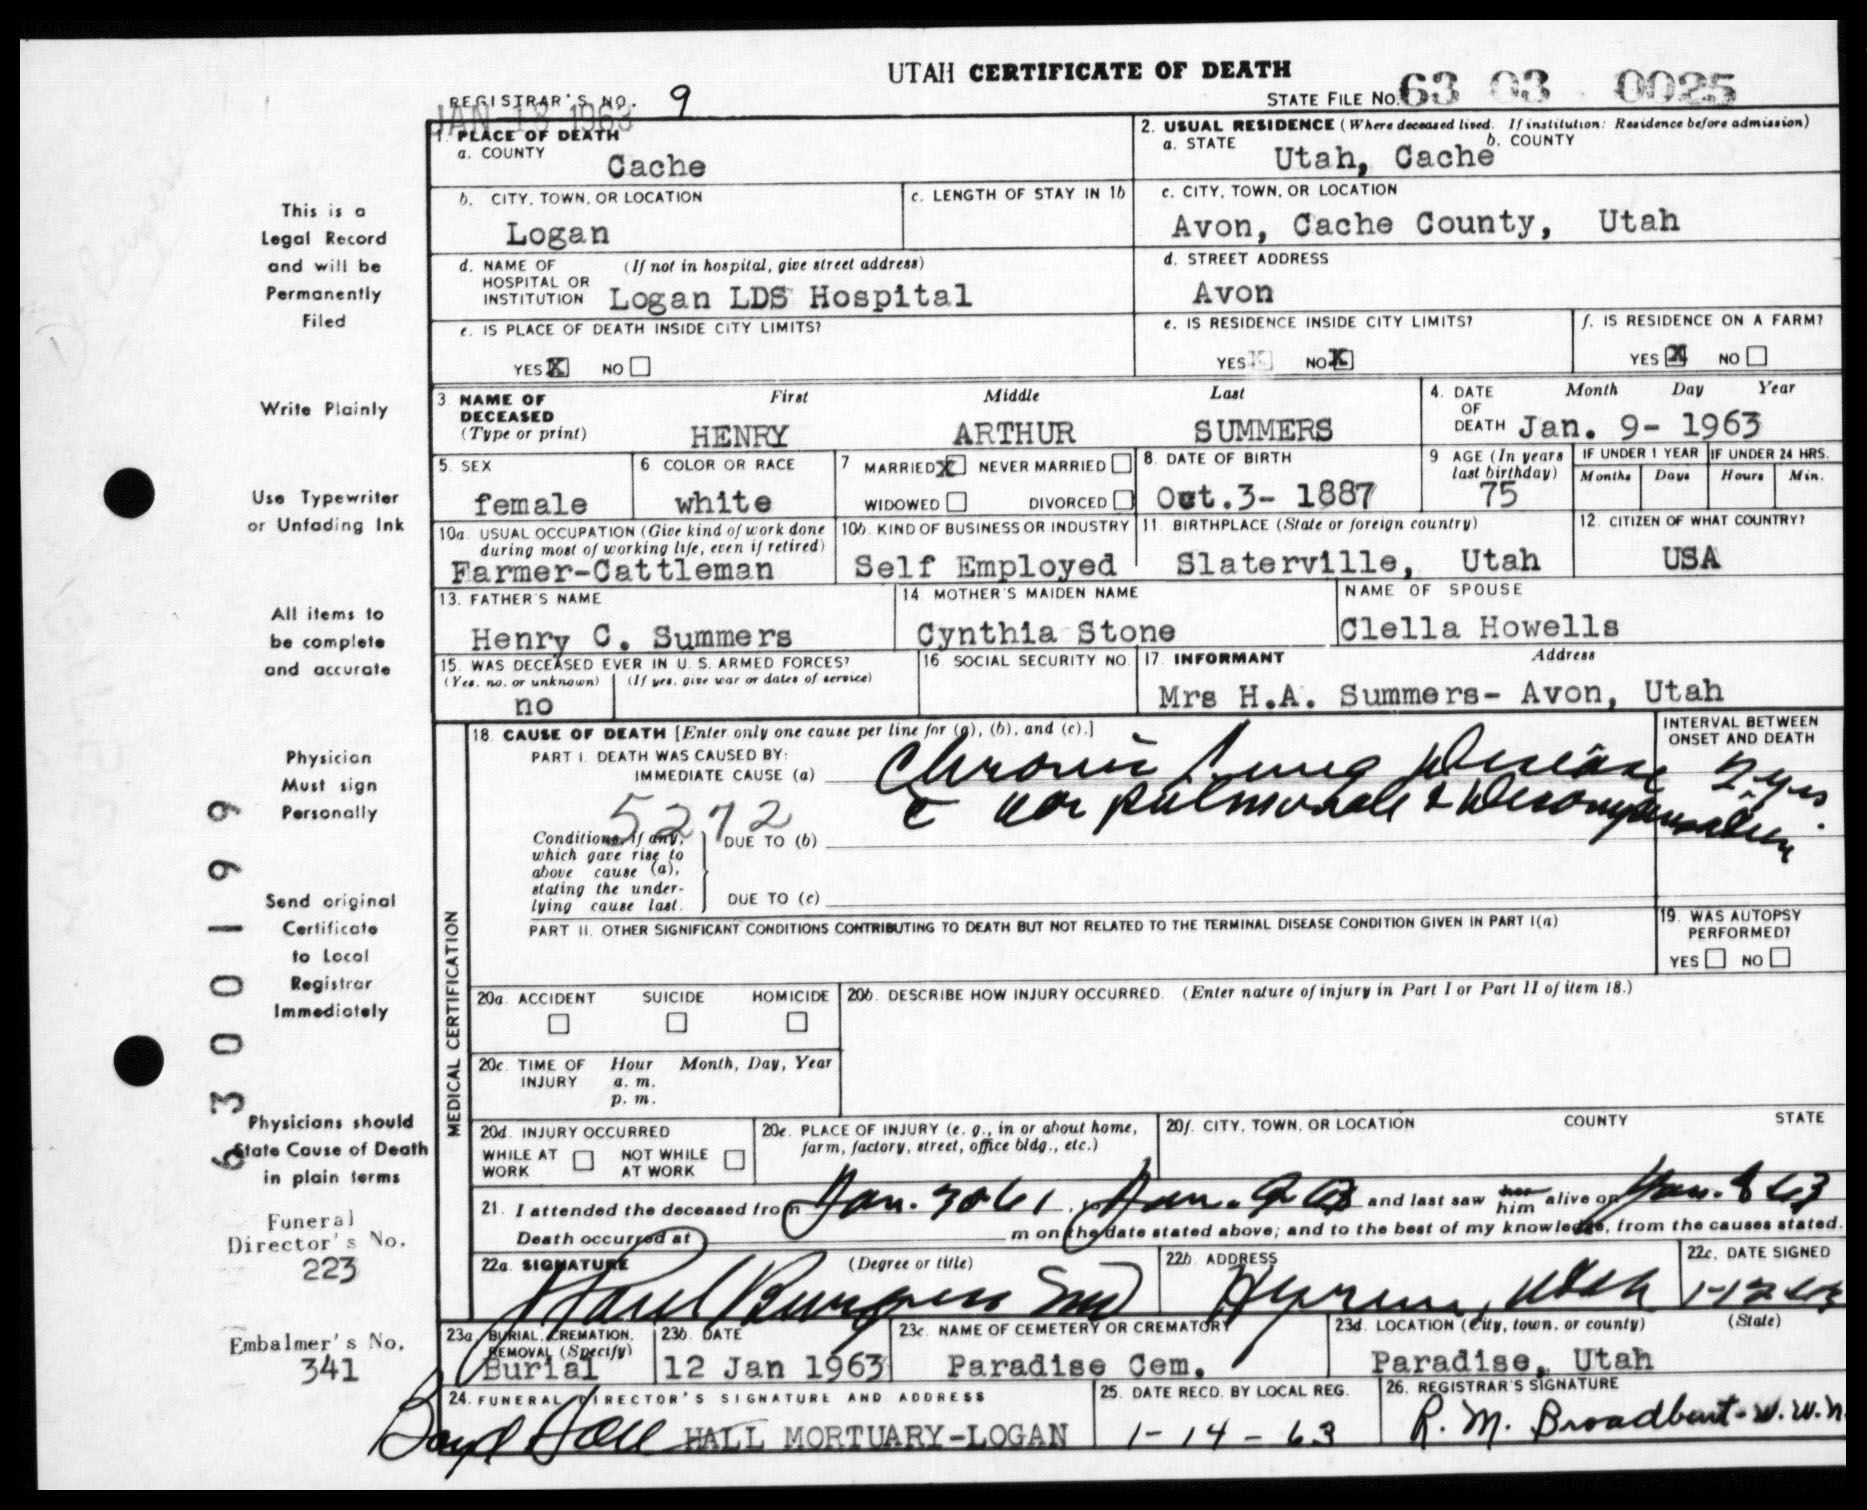 UTAH CERTIFICATE OF DEATH
REGISTRAR'S NO. 9
STATE FILE NO. 63 03 0025
JAN 18 1963
1. PLACE OF DEATH
a. COUNTY
Cache
2. USUAL RESIDENCE (Where deceased lived. If institution: Residence before admission)
a. STATE b. COUNTY
Utah, Cache
b. CITY, TOWN, OR LOCATION
Logan
c. LENGTH OF STAY IN 1b
c. CITY, TOWN, OR LOCATION
Avon, Cache County, Utah
d. NAME OF HOSPITAL OR INSTITUTION (If not in hospital, give street address)
Logan LDS Hospital
d. STREET ADDRESS
Avon
e. IS PLACE OF DEATH INSIDE CITY LIMITS?
YES X NO
e. IS RESIDENCE INSIDE CITY LIMITS?
YES NO X
f. IS RESIDENCE ON A FARM?
YES X NO
3. NAME OF DECEASED (Type or print)
First Middle Last
HENRY ARTHUR SUMMERS
4. DATE OF DEATH Month Day Year
Jan. 9- 1963
5. SEX
female
6 COLOR OR RACE
white
7 MARRIED X NEVER MARRIED
WIDOWED DIVORCED
8. DATE OF BIRTH
Oct.3- 1887
9 AGE (In years last birthday)
75
IF UNDER 1 YEAR
Months Days
IF UNDER 24 HRS.
Hours Min.
10a. USUAL OCCUPATION (Give kind of work done during most of working life, even if retired)
Farmer-Cattleman
10b. KIND OF BUSINESS OR INDUSTRY
Self Employed
11. BIRTHPLACE (State or foreign country)
Slaterville, Utah
12. CITIZEN OF WHAT COUNTRY?
USA
13. FATHER'S NAME
Henry C. Summers
14. MOTHER'S MAIDEN NAME
Cynthia Stone
NAME OF SPOUSE
Clella Howells
15. WAS DECEASED EVER IN U. S. ARMED FORCES?
(Yes, no, or unknown) (If yes, give war or dates of service)
no
16. SOCIAL SECURITY NO.
17. INFORMANT Address
Mrs H.A. Summers- Avon, Utah
MEDICAL CERTIFICATION
18. CAUSE OF DEATH [Enter only one cause per line for (a), (b), and (c).]
INTERVAL BETWEEN ONSET AND DEATH
PART I. DEATH WAS CAUSED BY:
IMMEDIATE CAUSE (a) Chronic Lung Disease 2 yrs.
c̄ cor pulmonale & Decompensation
5272
Conditions, if any, which gave rise to above cause (a), stating the underlying cause last.
DUE TO (b)
DUE TO (c)
PART II. OTHER SIGNIFICANT CONDITIONS CONTRIBUTING TO DEATH BUT NOT RELATED TO THE TERMINAL DISEASE CONDITION GIVEN IN PART I(a)
19. WAS AUTOPSY PERFORMED?
YES NO
20a. ACCIDENT SUICIDE HOMICIDE
20b. DESCRIBE HOW INJURY OCCURRED. (Enter nature of injury in Part I or Part II of item 18.)
20c. TIME OF INJURY Hour Month, Day, Year
a. m.
p. m.
20d. INJURY OCCURRED
WHILE AT WORK NOT WHILE AT WORK
20e. PLACE OF INJURY (e. g., in or about home, farm, factory, street, office bldg., etc.)
20f. CITY, TOWN, OR LOCATION COUNTY STATE
21. I attended the deceased from Jan. 30 61, Jan. 9 63 and last saw her him alive on Jan. 8 63
Death occurred at m on the date stated above; and to the best of my knowledge, from the causes stated.
22a. SIGNATURE (Degree or title)
Paul Burgess MD
22b. ADDRESS
Hyrum, Utah
22c. DATE SIGNED
1-12-63
23a. BURIAL, CREMATION, REMOVAL (Specify)
Burial
23b. DATE
12 Jan 1963
23c. NAME OF CEMETERY OR CREMATORY
Paradise Cem.
23d. LOCATION (City, town, or county) (State)
Paradise, Utah
24. FUNERAL DIRECTOR'S SIGNATURE AND ADDRESS
Boyd Hall HALL MORTUARY-LOGAN
25. DATE RECD. BY LOCAL REG.
1-14-63
26. REGISTRAR'S SIGNATURE
R. M. Broadbent-W.W.N.
This is a
Legal Record
and will be
Permanently
Filed
Write Plainly
Use Typewriter
or Unfading Ink
All items to
be complete
and accurate
Physician
Must sign
Personally
Send original
Certificate
to Local
Registrar
Immediately
Physicians should
State Cause of Death
in plain terms
Funeral
Director's No.
223
Embalmer's No.
341
6300199